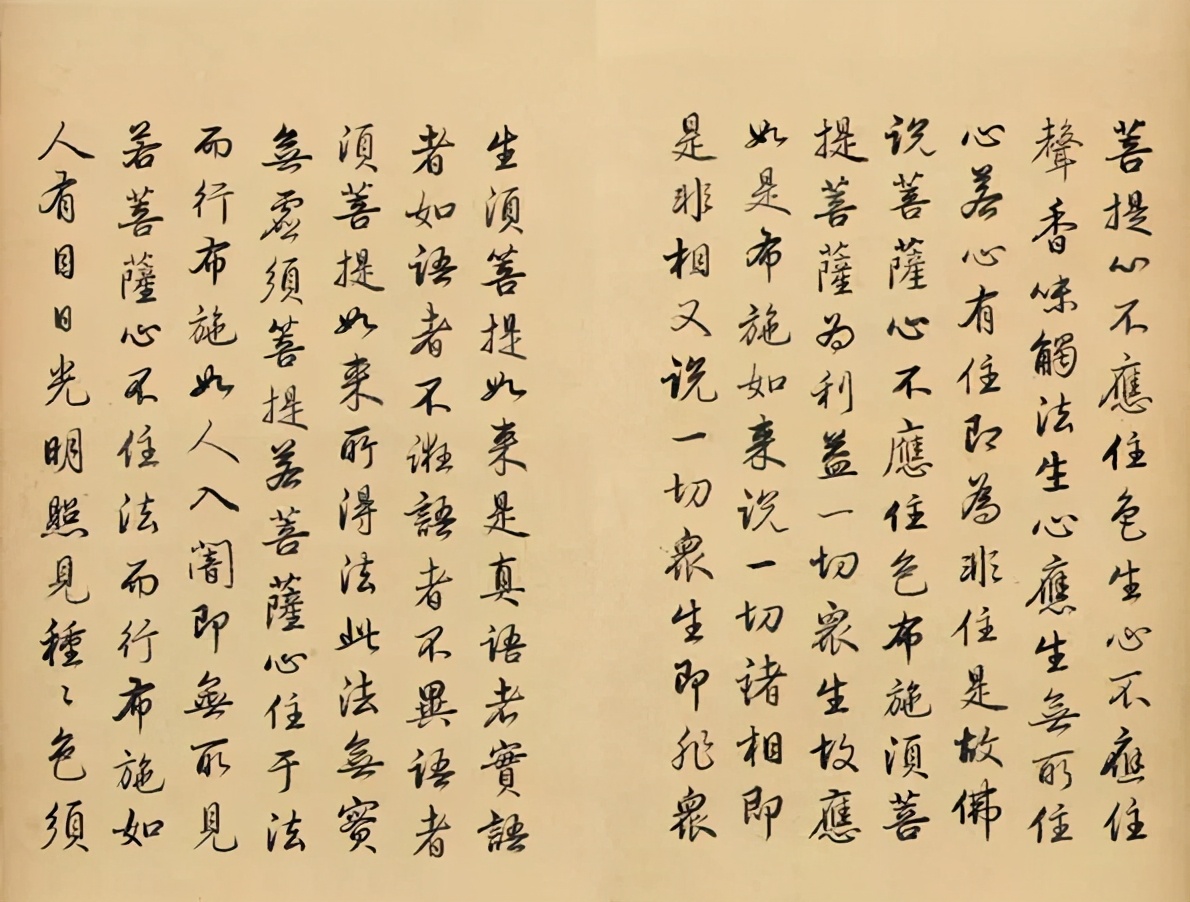 菩提心不應住色生心不應住
聲香味觸法生心應生無所住
心若心有住即為非住是故佛
説菩薩心不應住色布施須菩
提菩薩為利益一切衆生故應
如是布施如来説一切諸相即
是非相又説一切衆生即非衆
生須菩提如来是真語者實語
者如語者不誑語者不異語者
須菩提如来所得法此法無實
無虛須菩提若菩薩心住于法
而行布施如人入闇即無所見
若菩薩心不住法而行布施如
人有目日光明照見種〻色須